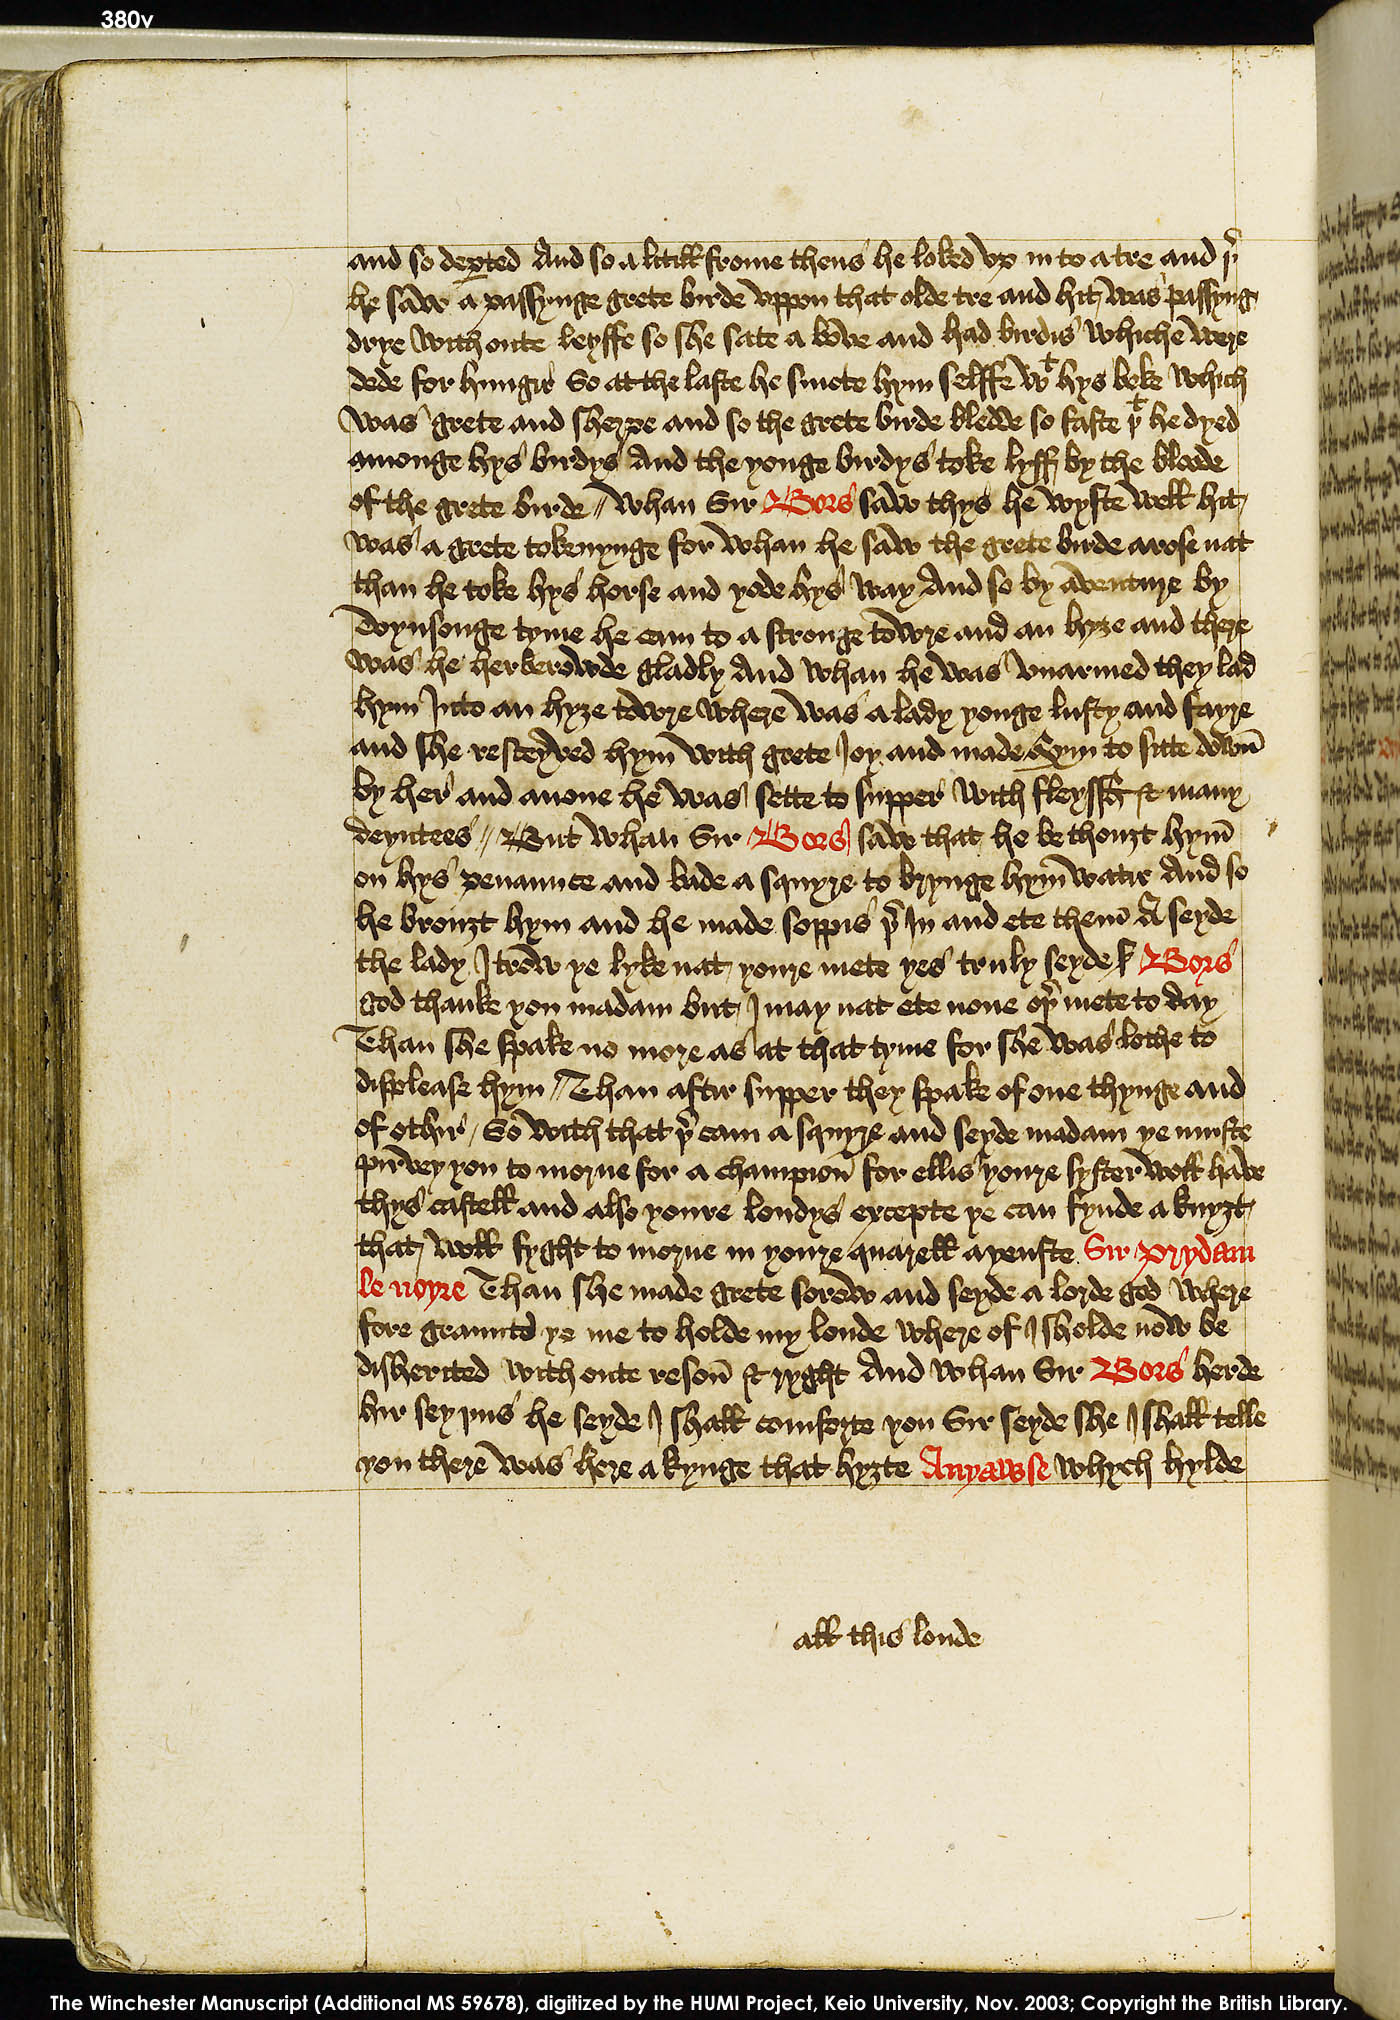 380v
and so deꝑted And so a litill frome thens he loked vp in to a tre and þr̄
he saw a passynge grete birde vppon that olde tre and hit was passyng
drye withoute leyffe so she sate a bove and had birdis whiche were
dede for hungir So at the laste he smote hym selffe wt hys beke which
was grete and sherpe and so the grete birde bledde so faste þt he dyed
amonge hys birdys And the yonge birdys toke lyff by the bloode
of the grete birde // Whan Sir Bors saw thys he wyste well hit
was a grete tokenynge for whan he saw the grete birde arose nat
than he toke hys horse and yode hys way And so by aventure by
Evynsonge tyme he cam to a stronge towre and an hyȝe and there
was he herberowde gladly And whan he was vnarmed they lad
hym Into an hyȝe towre where was a lady yonge lusty and fayre
and she resceyved hym with grete Ioy and made hym to sitte down̄
by her and anone he was sette to supper with fleyssh & many
deyntees // But whan Sir Bors saw that he be thouȝt hym̄
on hys penaunce and bade a squyre to brynge hym watir And so
he brouȝt hym and he made soppis þr̄ In and ete them̄ A seyde
the lady I trow ye lyke nat youre mete yes truly seyde ẜ Bors
god thanke you madam but I may nat ete none oþr̄ mete to day
Than she spake no more as at that tyme for she was lothe to
displease hym // Than aftir supper they spake of one thynge and
of othir / So with that þr̄ cam a squyre and seyde madam ye muste
purvey you to morne for a champion̄ for ellis youre syster woll have
thys castell and also youre londys excepte ye can fynde a knyȝt
that woll fyght to morne in youre quarell ayenste Sir Prydam
le noyre Than she made grete sorow and seyde a lorde god where
fore graunted ye me to holde my londe where of I sholde now be
disherited with oute reson̄ & ryght And whan Sir Bors herde
hir sey þus he seyde I shall comforte you Sir seyde she I shall telle
you there was here a kynge that hyȝte Anyawse whych hylde
all this londe
The Winchester Manuscript (Additional MS 59678), digitized by the HUMI Project, Keio University, Nov. 2003; Copyright the British Library.